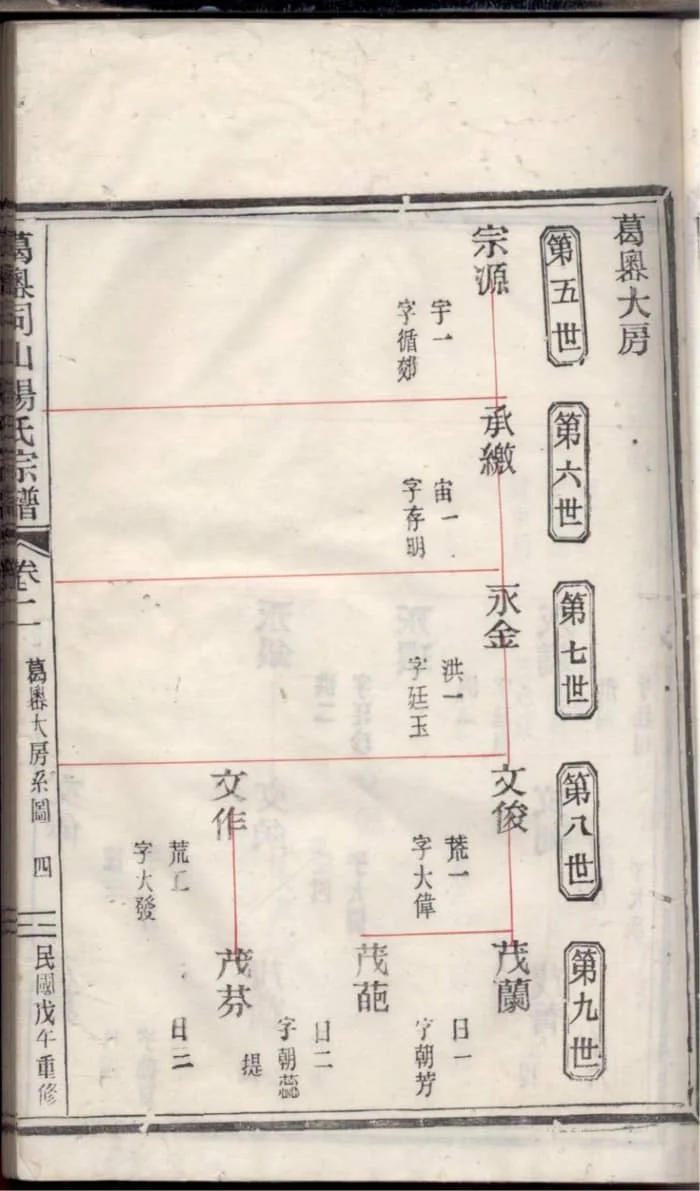 葛嶴大房
第五世
第六世
第七世
第八世
第九世
宗源
宇一
字循郊
承繳
宙一
字存明
永金
洪一
字廷玉
文俊
荒一
字大偉
文作
荒二
字大發
茂蘭
日一
字朝芳
茂葩
日二
字朝蕊
茂芬
提
日三
葛嶴同山楊氏宗譜
卷二
葛嶴大房系圖
四
民國戊午重修